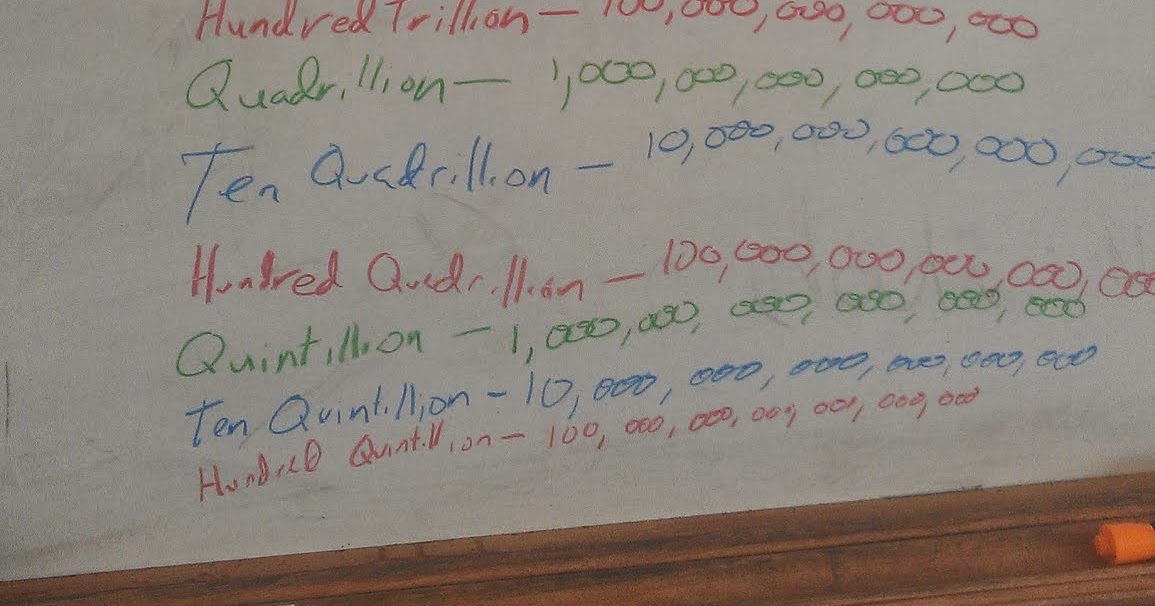 Hundred Trillion — 100,000,000,000,000
Quadrillion — 1,000,000,000,000,000
Ten Quadrillion — 10,000,000,000,000,000
Hundred Quadrillion — 100,000,000,000,000,000
Quintillion — 1,000,000,000,000,000,000
Ten Quintillion - 10,000,000,000,000,000,000
Hundred Quintillion - 100,000,000,000,000,000,000